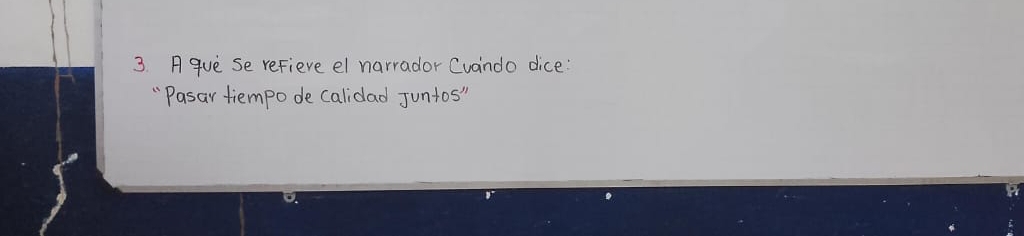 3. A qué se refiere el narrador Cuándo dice:
"Pasar tiempo de calidad Juntos"